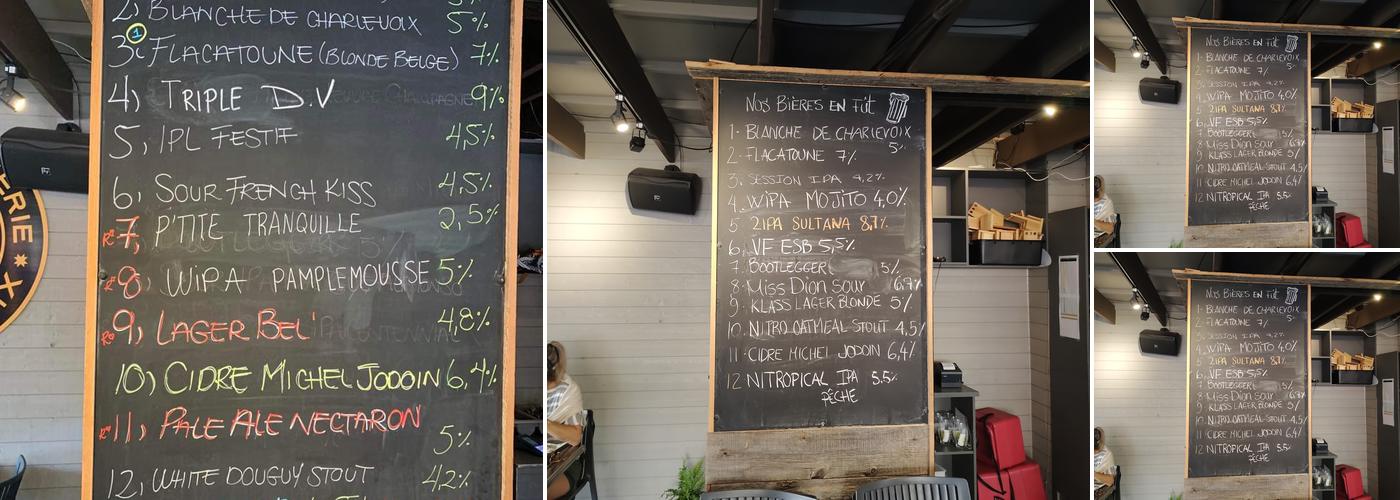 2, BLANCHE DE CHARLEVOIX 5%
1
3, FLACATOUNE (BLONDE BELGE) 7%
4) TRIPLE D.V 9%
5, IPL FESTIF 4,5%
6, SOUR FRENCH KISS 4,5%
7, P'TITE TRANQUILLE 2,5%
8, WIPA PAMPLEMOUSSE 5%
9, LAGER BEL' 4,8%
10) CIDRE MICHEL JODOIN 6,4%
11, PALE ALE NECTARON 5%
12, WHITE DOUGUY STOUT 4,2%
NOS BIÈRES EN FÛT
1. BLANCHE DE CHARLEVOIX 5%
2. FLACATOUNE 7%
3. SESSION IPA 4,2%
4. WIPA MOJITO 4,0%
5 2IPA SULTANA 8,7%
6, VF ESB 5,5%
7. BOOTLEGGER 5%
8. Miss Dion Sour 6.7%
9. KLASS LAGER BLONDE 5%
10. NITRO OATMEAL STOUT 4,5%
11. CIDRE MICHEL JODOIN 6,4%
12 NITROPICAL IPA 5.5%
PÊCHE
NOS BIÈRES EN FÛT
1. BLANCHE DE CHARLEVOIX 5%
2. FLACATOUNE 7%
3. SESSION IPA 4,2%
4. WIPA MOJITO 4,0%
5 2IPA SULTANA 8,7%
6, VF ESB 5,5%
7 BOOTLEGGER 5%
8 Miss Dion Sour 6.7%
9. KLASS LAGER BLONDE 5%
10. NITRO OATMEAL STOUT 4,5%
11. CIDRE MICHEL JODOIN 6,4%
12 NITROPICAL IPA 5.5%
PÊCHE
NOS BIÈRES EN FÛT
1. BLANCHE DE CHARLEVOIX 5%
2. FLACATOUNE 7%
3. SESSION IPA 4,2%
4. WIPA MOJITO 4,0%
5 2IPA SULTANA 8,7%
6, VF ESB 5,5%
7 BOOTLEGGER 5%
8 Miss Dion Sour 6.7%
9. KLASS LAGER BLONDE 5%
10. NITRO OATMEAL STOUT 4,5%
11. CIDRE MICHEL JODOIN 6,4%
12 NITROPICAL IPA 5.5%
PÊCHE